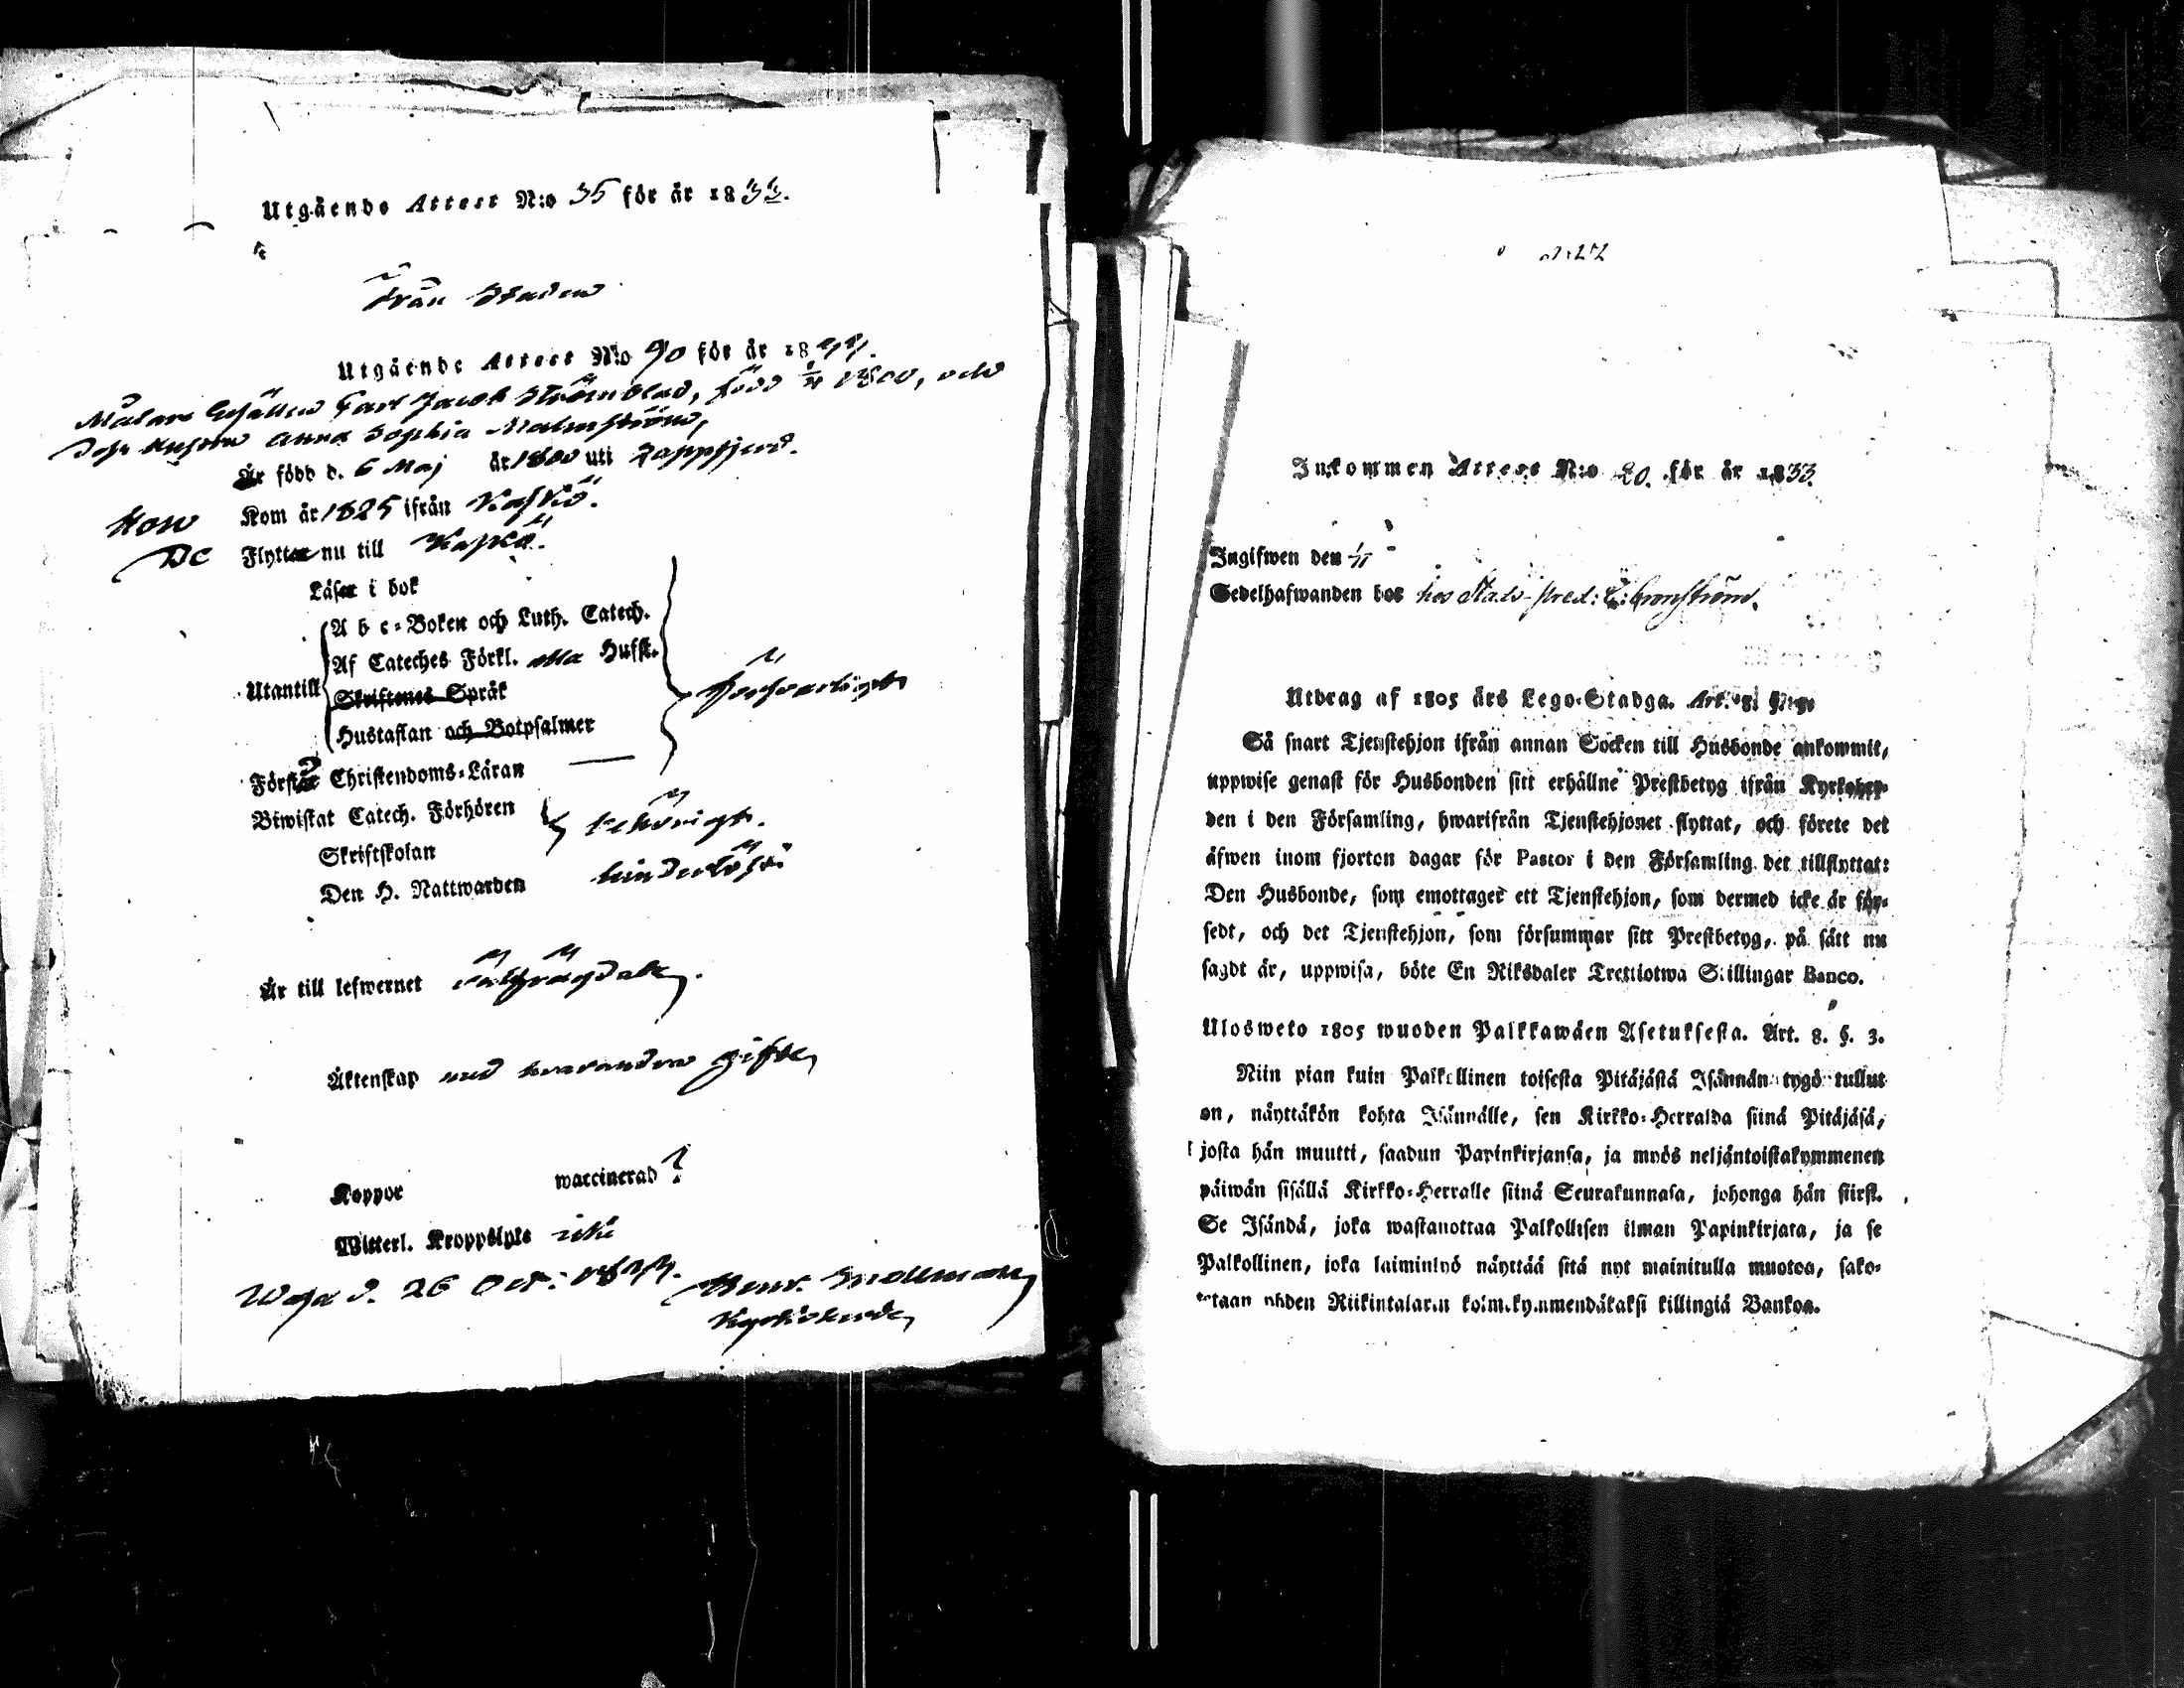 Utgående Attest N:o 35 för år 1833.
Från Staden
Utgående Attest N:o 90 för år 18
Målare Gesällen Carl Jacob Strömblad, född 1800, och
Dess hustru Anna Sophia Malmström,
Är född d. 6 Maj år 1800 uti Lappfjerd.
Hon Kom år 1825 ifrån Kaskö.
De Flytta nu till Kaskö.
Läsa i bok
A b c-Boken och Luth. Catech.
Af Cateches Förkl. alla Husst.
Utantill Skriftenes Språk
Hustaflan och Botpsalmer
försvarligt
Förstå Christendoms-Läran
Biwistat Catech. Förhören
behörigt.
Skriftskolan
Den H. Nattwarden hinderlöse
Är till lefwernet
Äktenskap med hvarandra gifte
Koppor waccinerad?
Witterl. Kroppslyte icke
Wasa d. 26 Oct:
Kyrkoherde
Inkommen Attest N:o 20. för år 1833.
Ingifwen den
Sedelhafwanden hos hos
Utdrag af 1805 års Lego-Stadga. Art. 8.
Så snart Tjenstehjon ifrån annan Socken till Husbonde ankommit,
uppwise genast för Husbonden sitt erhållne Prestbetyg ifrån Kyrkoher-
den i den Församling, hwarifrån Tjenstehjonet flyttat, och förete det
äfwen inom fjorton dagar för Pastor i den Församling det tillflyttat:
Den Husbonde, som emottager ett Tjenstehjon, som dermed icke är för-
sedt, och det Tjenstehjon, som försummar sitt Prestbetyg, på sätt nu
sagdt är, uppwisa, böte En Riksdaler Trettiotwå Skillingar Banco.
Ulosweto 1805 wuoden Palkkawäen Asetuksesta. Art. 8. §. 3.
Niin pian kuin Palkollinen toisesta Pitäjästä Isännän tygö tullut
on, näyttäkön kohta Isännälle, sen Kirkko-Herralda siinä Pitäjäsä,
josta hän muutti, saadun Papinkirjansa, ja myös neljäntoistakymmenen
päiwän sisällä Kirkko-Herralle siinä Seurakunnasa, johonga hän siirst.
Se Isändä, joka wastanottaa Palkollisen ilman Papinkirjata, ja se
Palkollinen, joka laiminlyö näyttää sitä nyt mainitulla muotoa, sako-
tetaan yhden Riikintalarin kolmekymmendäkaksi killingiä Bankoa.